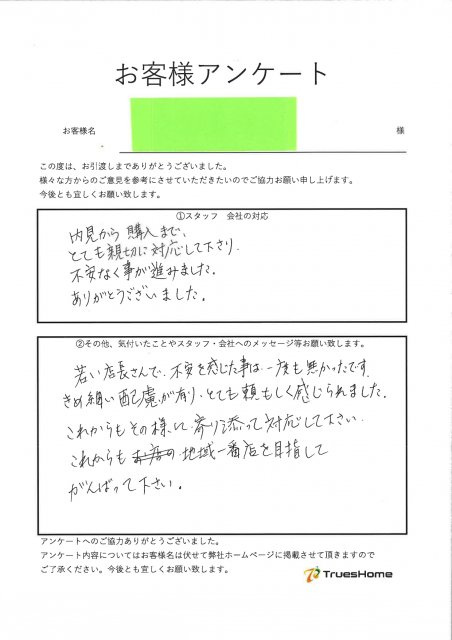 お客様アンケート
お客様名
様
この度は、お引渡しまでありがとうございました。
様々な方からのご意見を参考にさせていただきたいのでご協力お願い申し上げます。
今後とも宜しくお願い致します。
①スタッフ　会社の対応
内見から購入まで、
とても親切に対応して下さり、
不安なく事が進みました。
ありがとうございました。
②その他、気付いたことやスタッフ・会社へのメッセージ等お願い致します。
若い店長さんで、不安を感じた事は一度も無かったです。
きめ細い配慮が有り、とても頼もしく感じられました。
これからもその様に寄り添って対応して下さい。
これからも 地域一番店を目指して
がんばって下さい。
アンケートへのご協力ありがとうございました。
アンケート内容についてはお客様名は伏せて弊社ホームページに掲載させて頂きますので
ご了承ください。今後とも宜しくお願い致します。
TruesHome